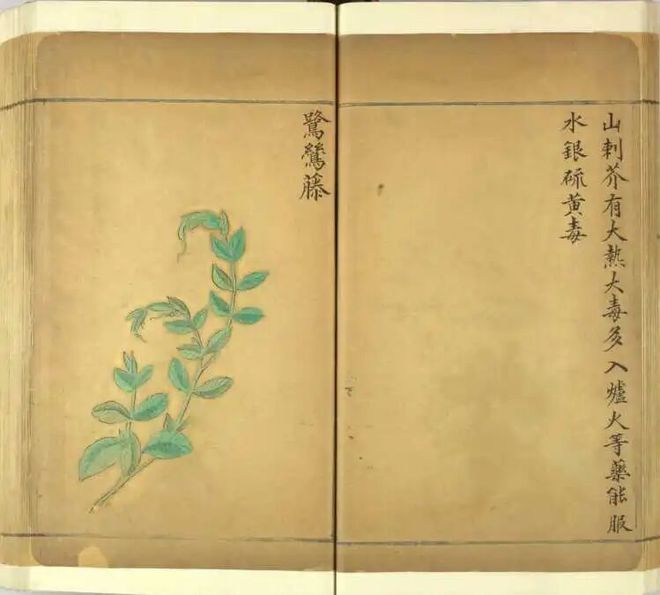 山刺芥有大熱大毒多入爐火等藥能服
水銀硫黄毒
鷺鷥藤